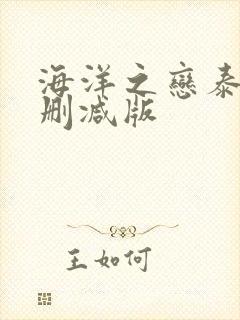 海洋之戀泰
删减版
王如何